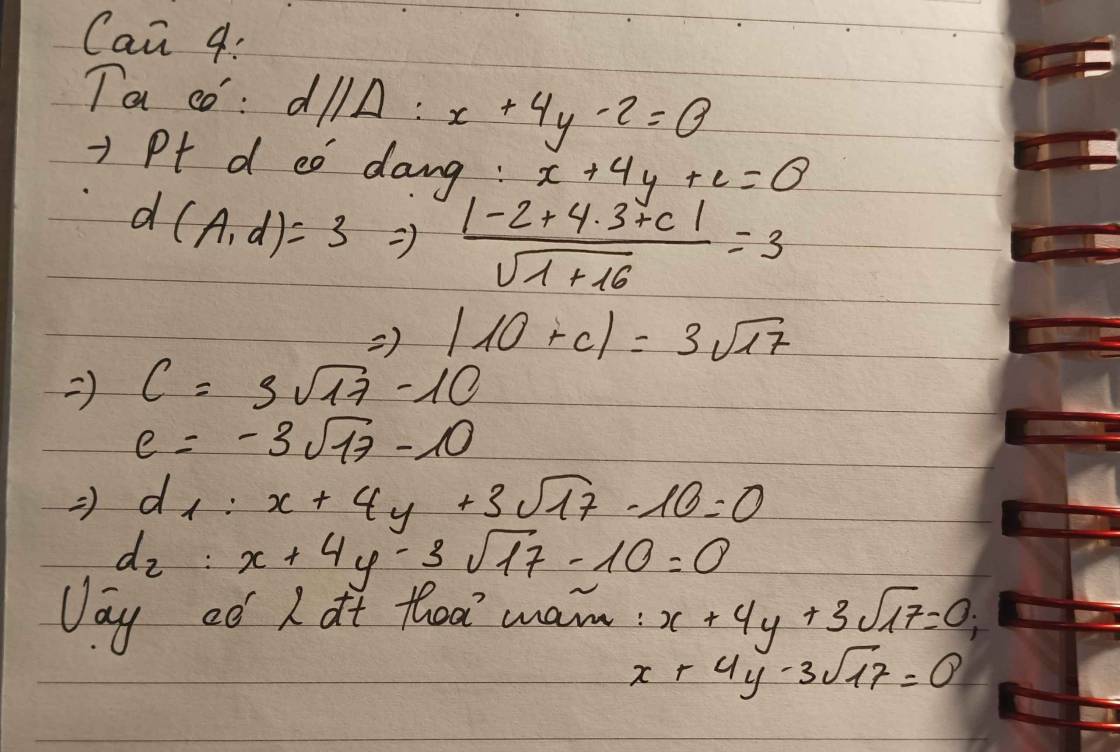 Câu 4:
Ta có: d // Δ : x + 4y - 2 = 0
→ Pt d có dạng : x + 4y + c = 0
d(A, d) = 3 => |-2 + 4.3 + c| / √(1 + 16) = 3
=> |10 + c| = 3√17
=> C = 3√17 - 10
c = -3√17 - 10
=> d1 : x + 4y + 3√17 - 10 = 0
d2 : x + 4y - 3√17 - 10 = 0
Vậy có 2 đt thoả mãn : x + 4y + 3√17 = 0;
x + 4y - 3√17 = 0